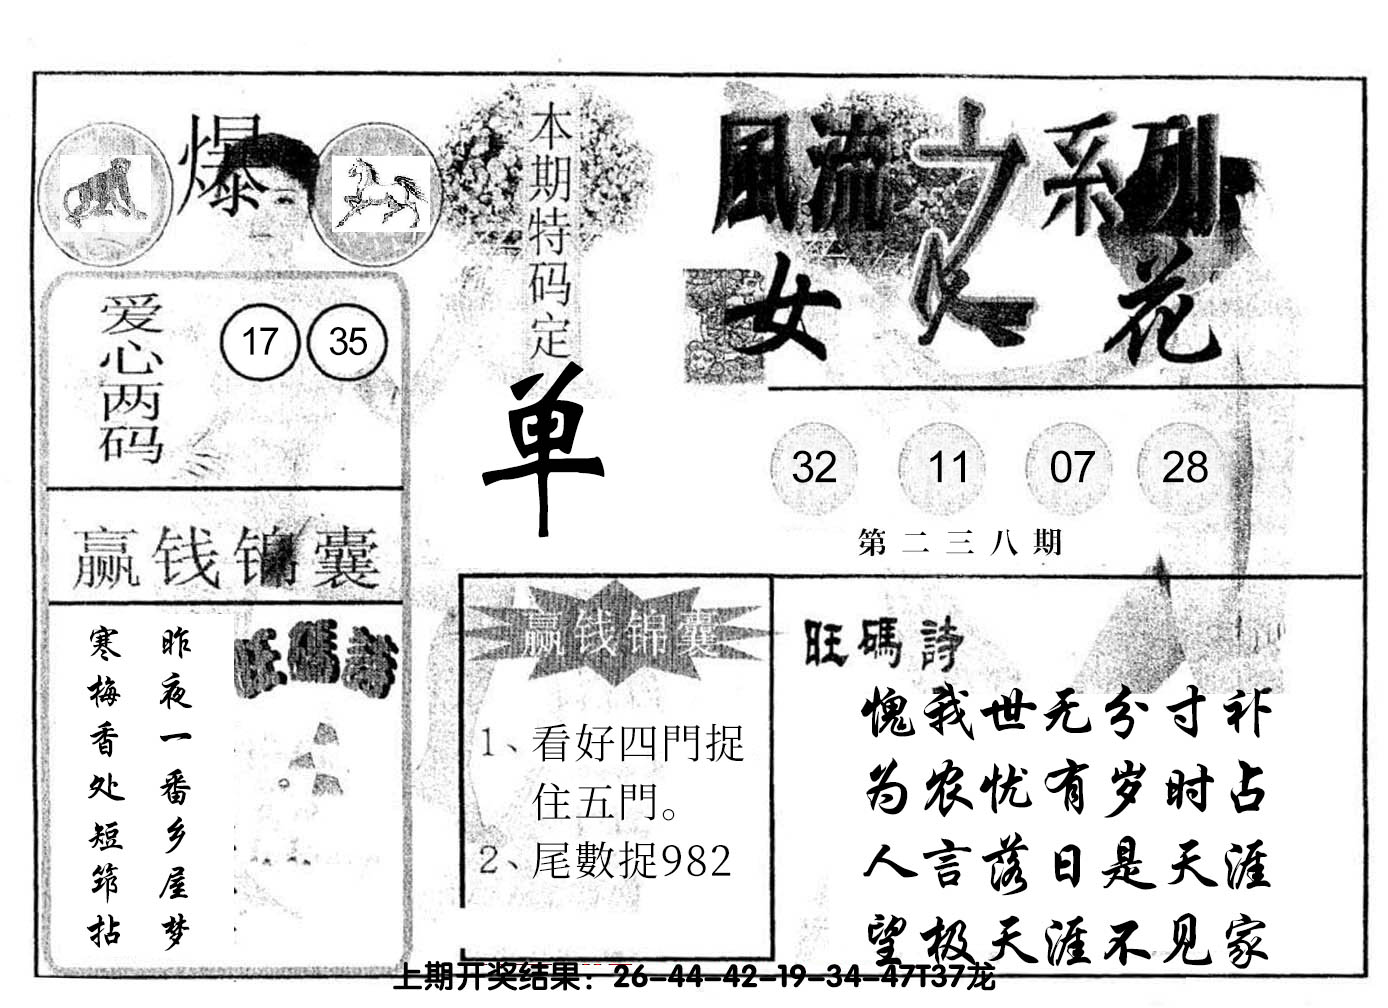 爆
本期特码定
单
風流之系列
女人花
爱心两码
17 35
32 11 07 28
第二三八期
赢钱锦囊
旺碼詩
昨夜一番乡屋梦
寒梅香处短筇拈
赢钱锦囊
1、看好四門捉
住五門。
2、尾數捉982
旺碼詩
愧我世无分寸补
为农忧有岁时占
人言落日是天涯
望极天涯不见家
上期开奖结果：26-44-42-19-34-47T37龙